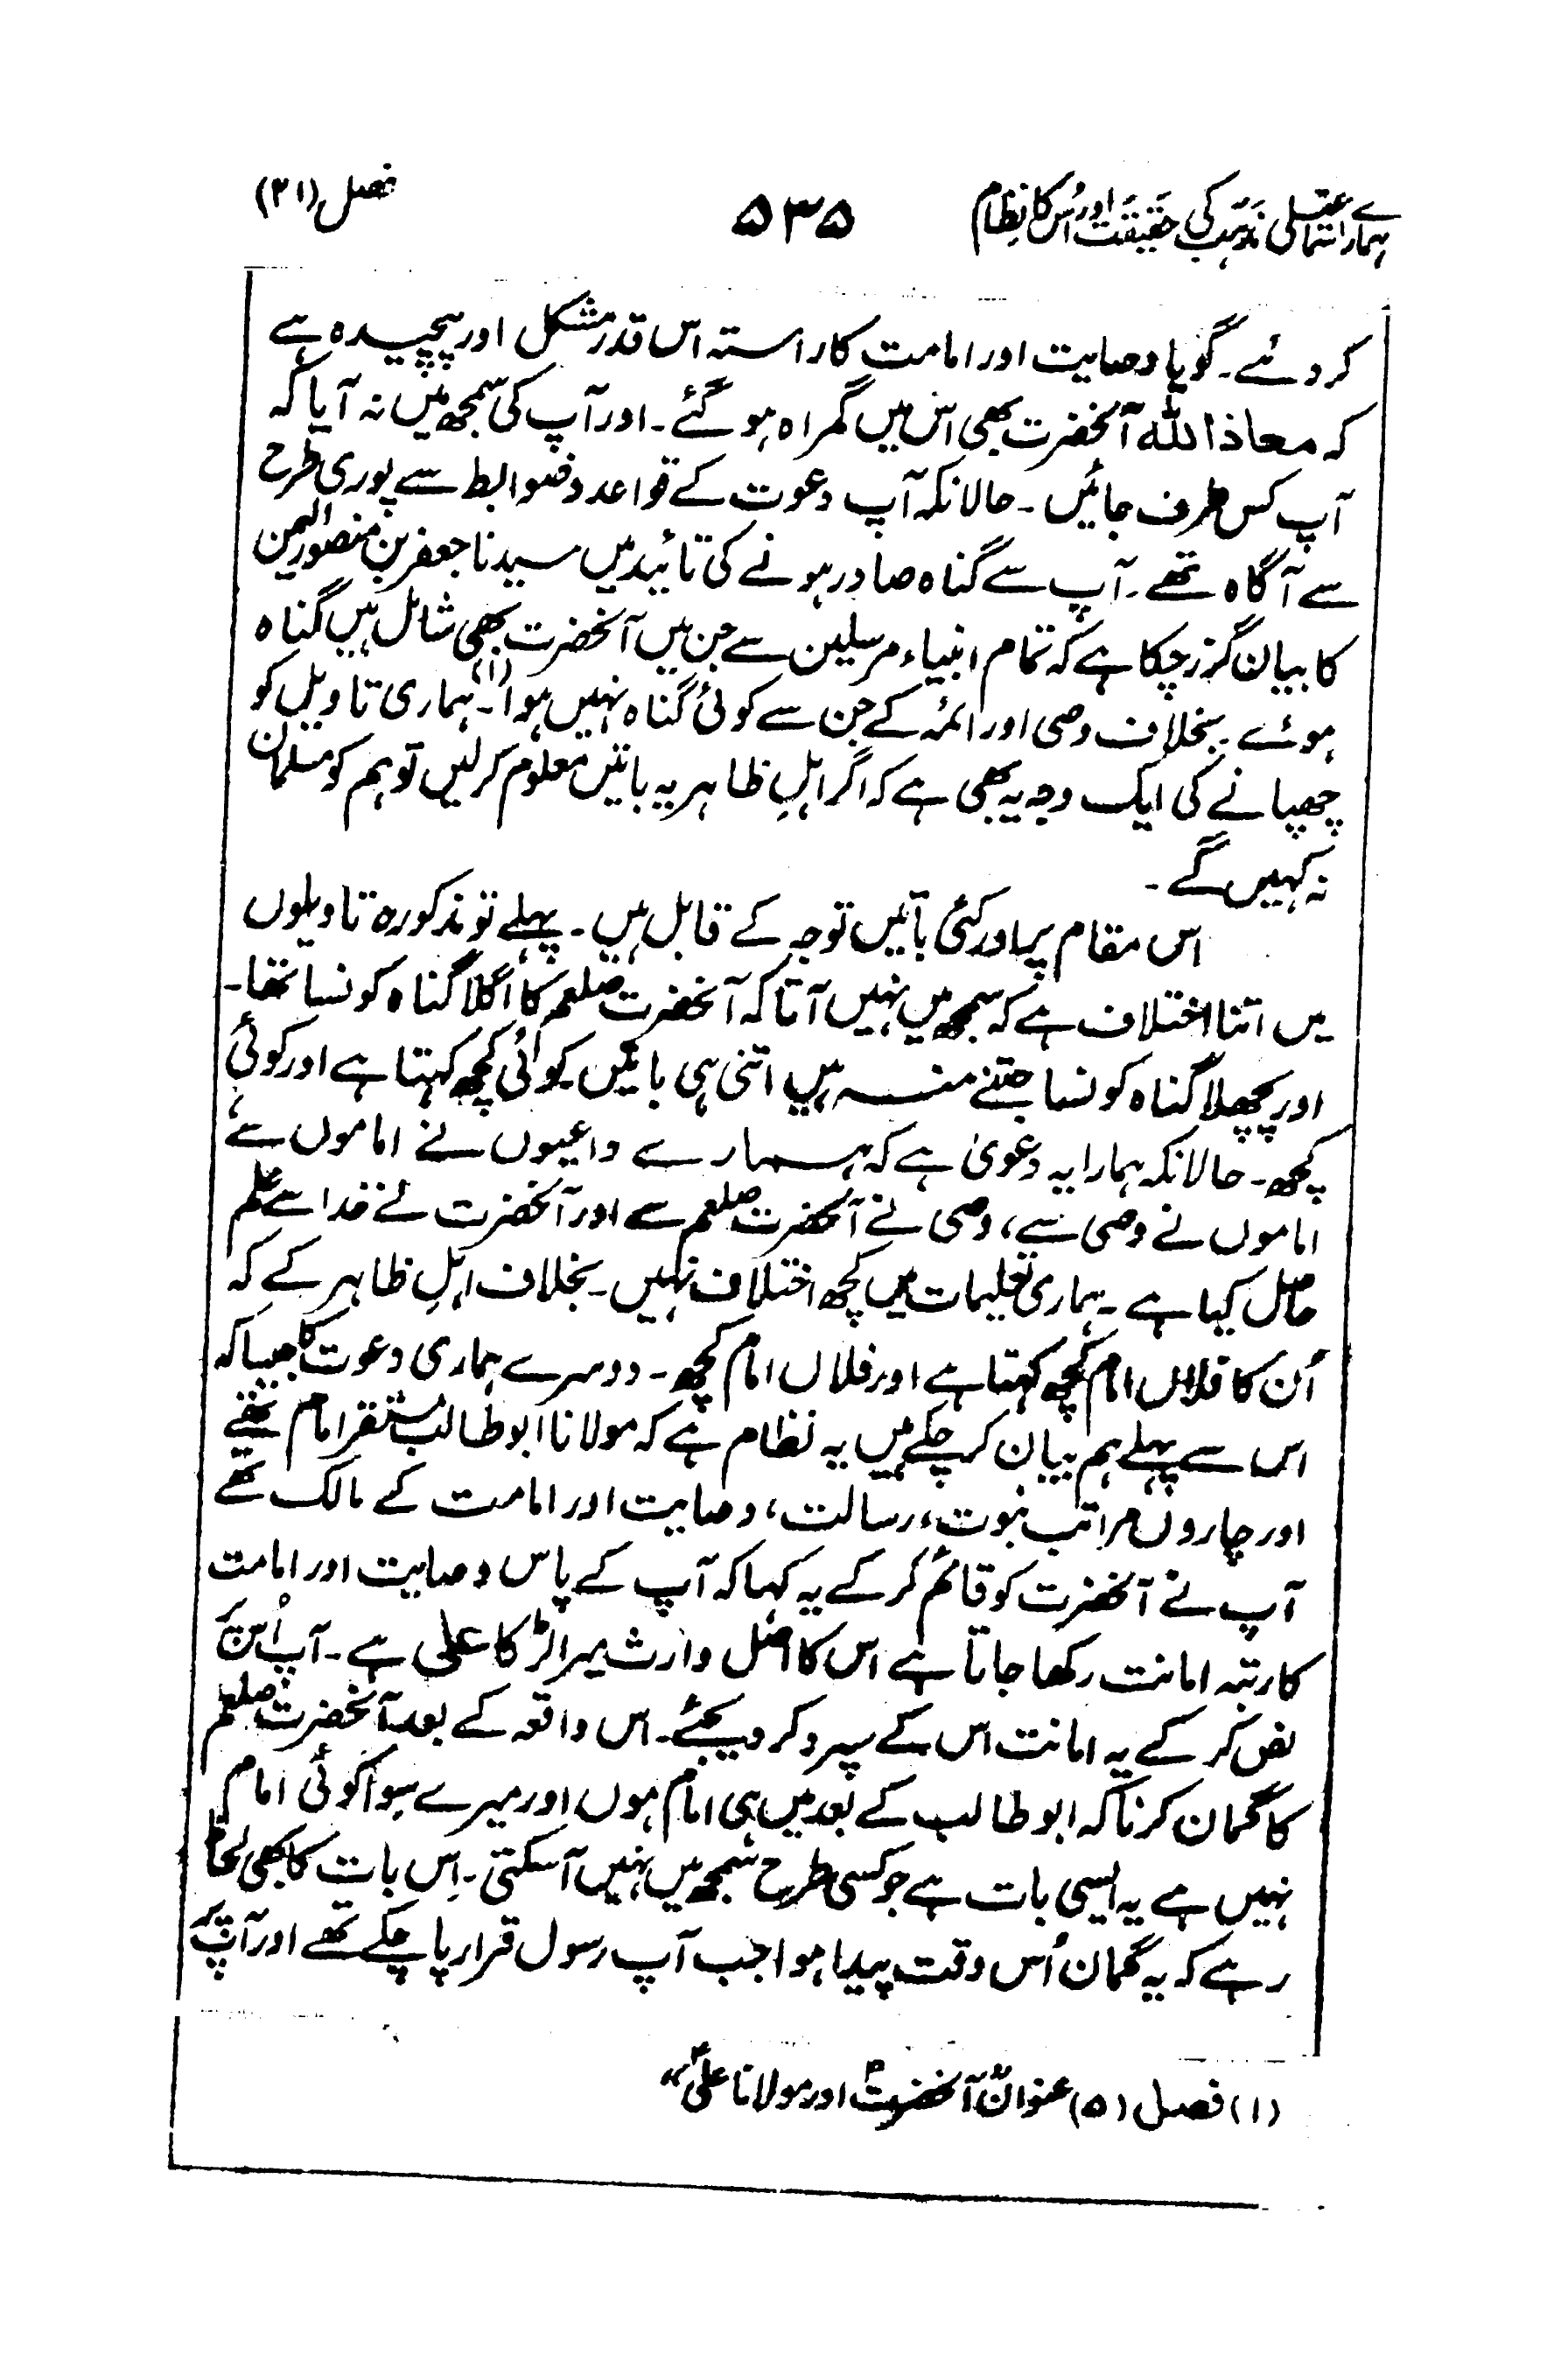 ہمارے اسماعیلی مذہب کی حقیقت اور اُس کا نظام ۵۳۵ فصل (۳۱)
کر دئے۔ گویا وصایت اور امامت کا راستہ اس قدر مشکل اور پیچیدہ ہے
کہ معاذ اللہ آنحضرت بھی اس میں گمراہ ہو گئے۔ اور آپ کی سمجھ میں نہ آیا کہ
آپ کس طرف جائیں۔ حالانکہ آپ دعوت کے قواعد و ضوابط سے پوری طرح
سے آگاہ تھے۔ آپ سے گناہ صادر ہونے کی تائید میں سیدنا جعفر بن منصور الیمن
کا بیان گزر چکا ہے کہ تمام انبیاء مرسلین سے جن میں آنحضرت بھی شامل ہیں گناہ
ہوئے بخلاف وصی اور ائمہ کے جن سے کوئی گناہ نہیں ہوا (۱)۔ ہماری تاویل کو
چھپانے کی ایک وجہ یہ بھی ہے کہ اگر اہلِ ظاہر یہ باتیں معلوم کر لیں تو ہم کو مسلمان
نہ کہیں گے۔
اس مقام پر اور کئی باتیں توجہ کے قابل ہیں۔ پہلے تو مذکورہ تاویلوں
میں اتنا اختلاف ہے کہ سمجھ میں نہیں آتا کہ آنحضرت صلعم کا اگلا گناہ کونسا تھا۔
اور پچھلا گناہ کونسا جتنے منہ ہیں اتنی ہی باتیں۔ کوئی کچھ کہتا ہے اور کوئی
کچھ۔ حالانکہ ہمارا یہ دعویٰ ہے کہ ہمارے داعیوں نے اماموں سے
اماموں نے وصی سے، وصی نے آنحضرت صلعم سے اور آنحضرت نے خدا سے علم
حاصل کیا ہے۔ ہماری تعلیمات میں کچھ اختلاف نہیں۔ بخلاف اہلِ ظاہر کے کہ
اُن کا فلاں امام کچھ کہتا ہے اور فلاں امام کچھ۔ دوسرے ہماری دعوت کا جیسا کہ
اس سے پہلے ہم بیان کر چکے ہیں یہ نظام ہے کہ مولانا ابو طالب مستقر امام تھے
اور چاروں مراتب نبوت، رسالت، وصایت اور امامت کے مالک تھے
آپ نے آنحضرت کو قائم کر کے یہ کہا کہ آپ کے پاس وصایت اور امامت
کا رتبہ امانت رکھا جاتا ہے اس کا اصل وارث میرا لڑکا علی ہے۔ آپ اُس پر
نص کر کے یہ امانت اس کے سپرد کر دیجئے۔ اس واقعہ کے بعد آنحضرت صلعم
کا گمان کرنا کہ ابو طالب کے بعد میں ہی امام ہوں اور میرے سوا کوئی امام
نہیں ہے یہ ایسی بات ہے جو کسی طرح سمجھ میں نہیں آسکتی۔ اِس بات کا بھی لحاظ
رہے کہ یہ گمان اُس وقت پیدا ہوا جب آپ رسول قرار پا چکے تھے اور آپ پر
(۱) فصل (۵) عنوان "آنحضرتؐ اور مولانا علیؑ"